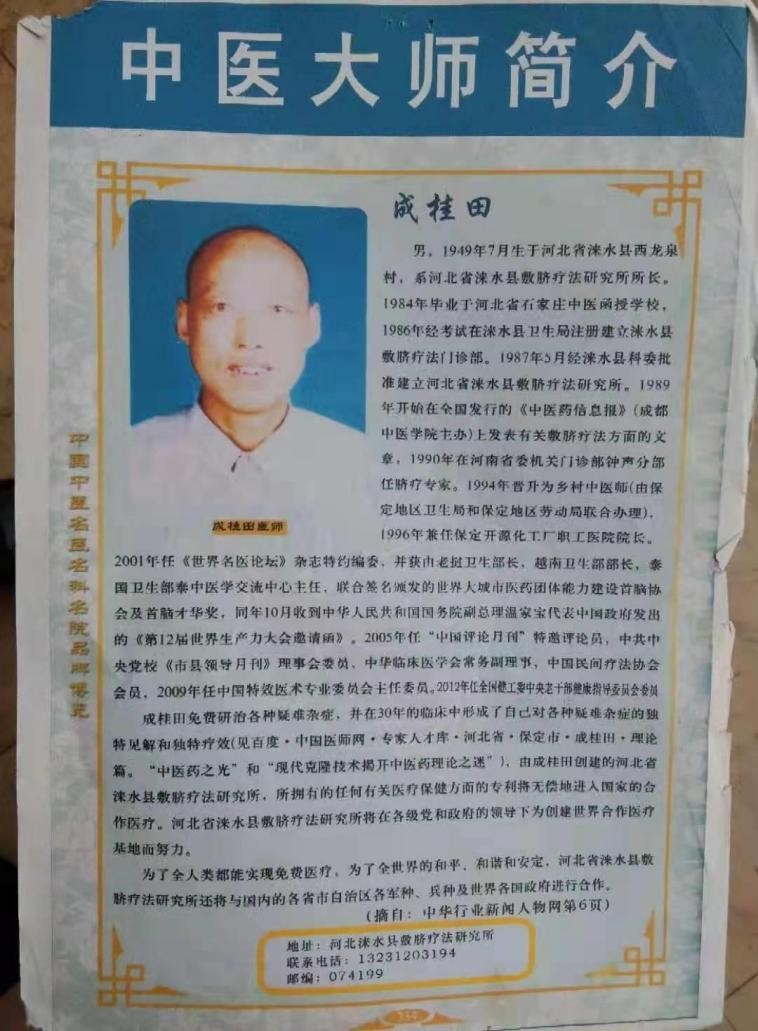 中医大师简介
成桂田
男，1949年7月生于河北省涞水县西龙泉
村，系河北省涞水县敷脐疗法研究所所长。
1984年毕业于河北省石家庄中医函授学校，
1986年经考试在涞水县卫生局注册建立涞水县
敷脐疗法门诊部。1987年5月经涞水县科委批
准建立河北省涞水县敷脐疗法研究所。1989
年开始在全国发行的《中医药信息报》(成都
中医学院主办)上发表有关敷脐疗法方面的文
章，1990年在河南省委机关门诊部钟声分部
任脐疗专家。1994年晋升为乡村中医师(由保
定地区卫生局和保定地区劳动局联合办理)，
1996年兼任保定开源化工厂职工医院院长。
成桂田医师
2001年任《世界名医论坛》杂志特约编委，并获由老挝卫生部长，越南卫生部部长，泰
国卫生部泰中医学交流中心主任，联合签名颁发的世界大城市医药团体能力建设首脑协
会及首脑才华奖，同年10月收到中华人民共和国国务院副总理温家宝代表中国政府发出
的《第12届世界生产力大会邀请函》。2005年任“中国评论月刊”特邀评论员，中共中
央党校《市县领导月刊》理事会委员，中华临床医学会常务副理事，中国民间疗法协会
会员，2009年任中国特效医术专业委员会主任委员。2012年任全国健工委中央老干部健康指导委员会委员
成桂田免费研治各种疑难杂症，并在30年的临床中形成了自己对各种疑难杂症的独
特见解和独特疗效(见百度·中国医师网·专家人才库·河北省·保定市·成桂田·理论
篇。“中医药之光”和“现代克隆技术揭开中医药理论之迷”)，由成桂田创建的河北省
涞水县敷脐疗法研究所，所拥有的任何有关医疗保健方面的专利将无偿地进入国家的合
作医疗。河北省涞水县敷脐疗法研究所将在各级党和政府的领导下为创建世界合作医疗
基地而努力。
为了全人类都能实现免费医疗，为了全世界的和平、和谐和安定，河北省涞水县敷
脐疗法研究所还将与国内的各省市自治区各军种、兵种及世界各国政府进行合作。
(摘自：中华行业新闻人物网第6页)
地址：河北涞水县敷脐疗法研究所
联系电话：13231203194
邮编：074199
中国中医名医名科名院品牌博览
334